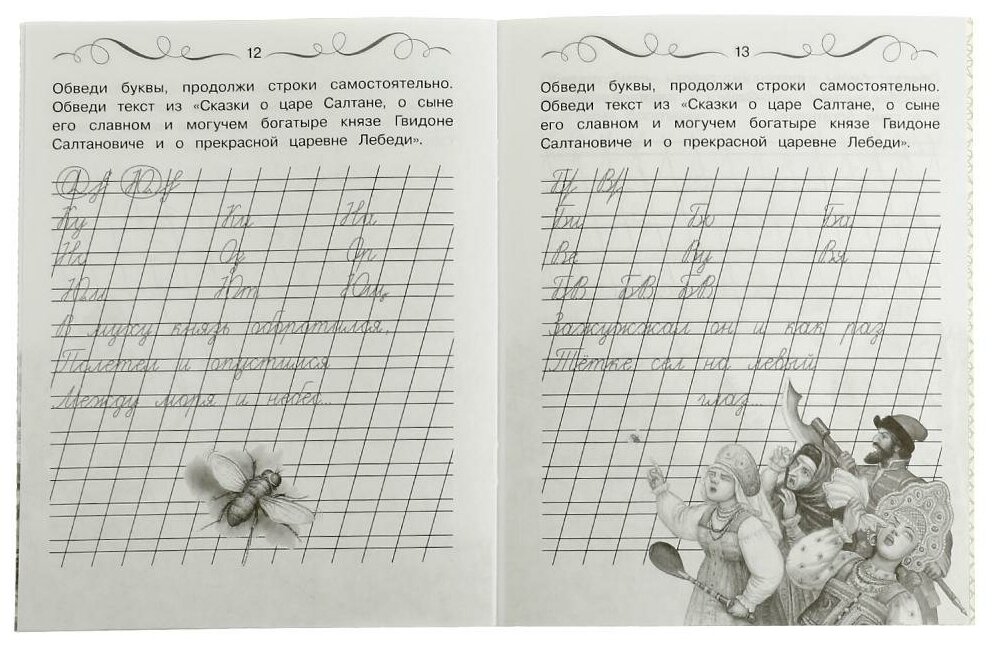 12
Обведи буквы, продолжи строки самостоятельно.
Обведи текст из «Сказки о царе Салтане, о сыне
его славном и могучем богатыре князе Гвидоне
Салтановиче и о прекрасной царевне Лебеди».
Ку Ки На
Оз Оп
Юли Ют Ющ
В муху князь обротился,
Полетел и опустился
Между моря и небес...
13
Обведи буквы, продолжи строки самостоятельно.
Обведи текст из «Сказки о царе Салтане, о сыне
его славном и могучем богатыре князе Гвидоне
Салтановиче и о прекрасной царевне Лебеди».
Би Бо Ба
Ве Ву Вя
БВ БВ БВ
Зажужжал он и как раз
Тётке сел на левый
глаз...